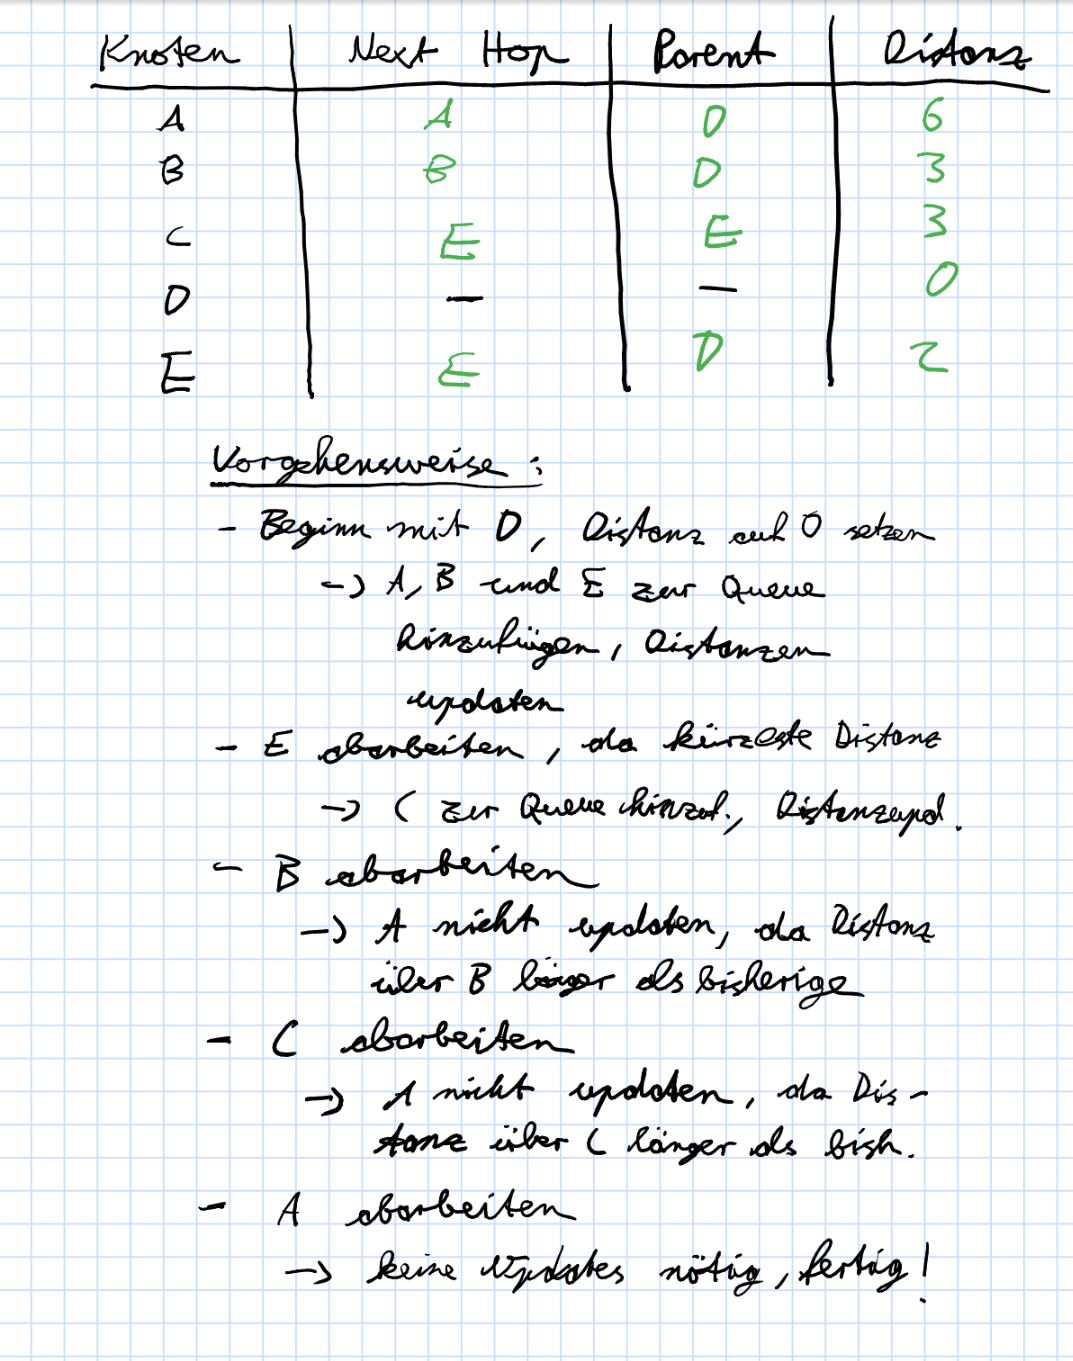 Knoten Next Hop Parent Distanz
A A D 6
B B D 3
C E E 3
D — — 0
E E D 2
Vorgehensweise:
- Beginn mit D, Distanz auf 0 setzen
-> A, B und E zur Queue
hinzufügen, Distanzen
updaten
- E abarbeiten, da kürzeste Distanz
-> C zur Queue hinzuf., Distanzupd.
- B abarbeiten
-> A nicht updaten, da Distanz
über B länger als bisherige
- C abarbeiten
-> A nicht updaten, da Dis-
tanz über C länger als bish.
- A abarbeiten
-> keine Updates nötig, fertig!